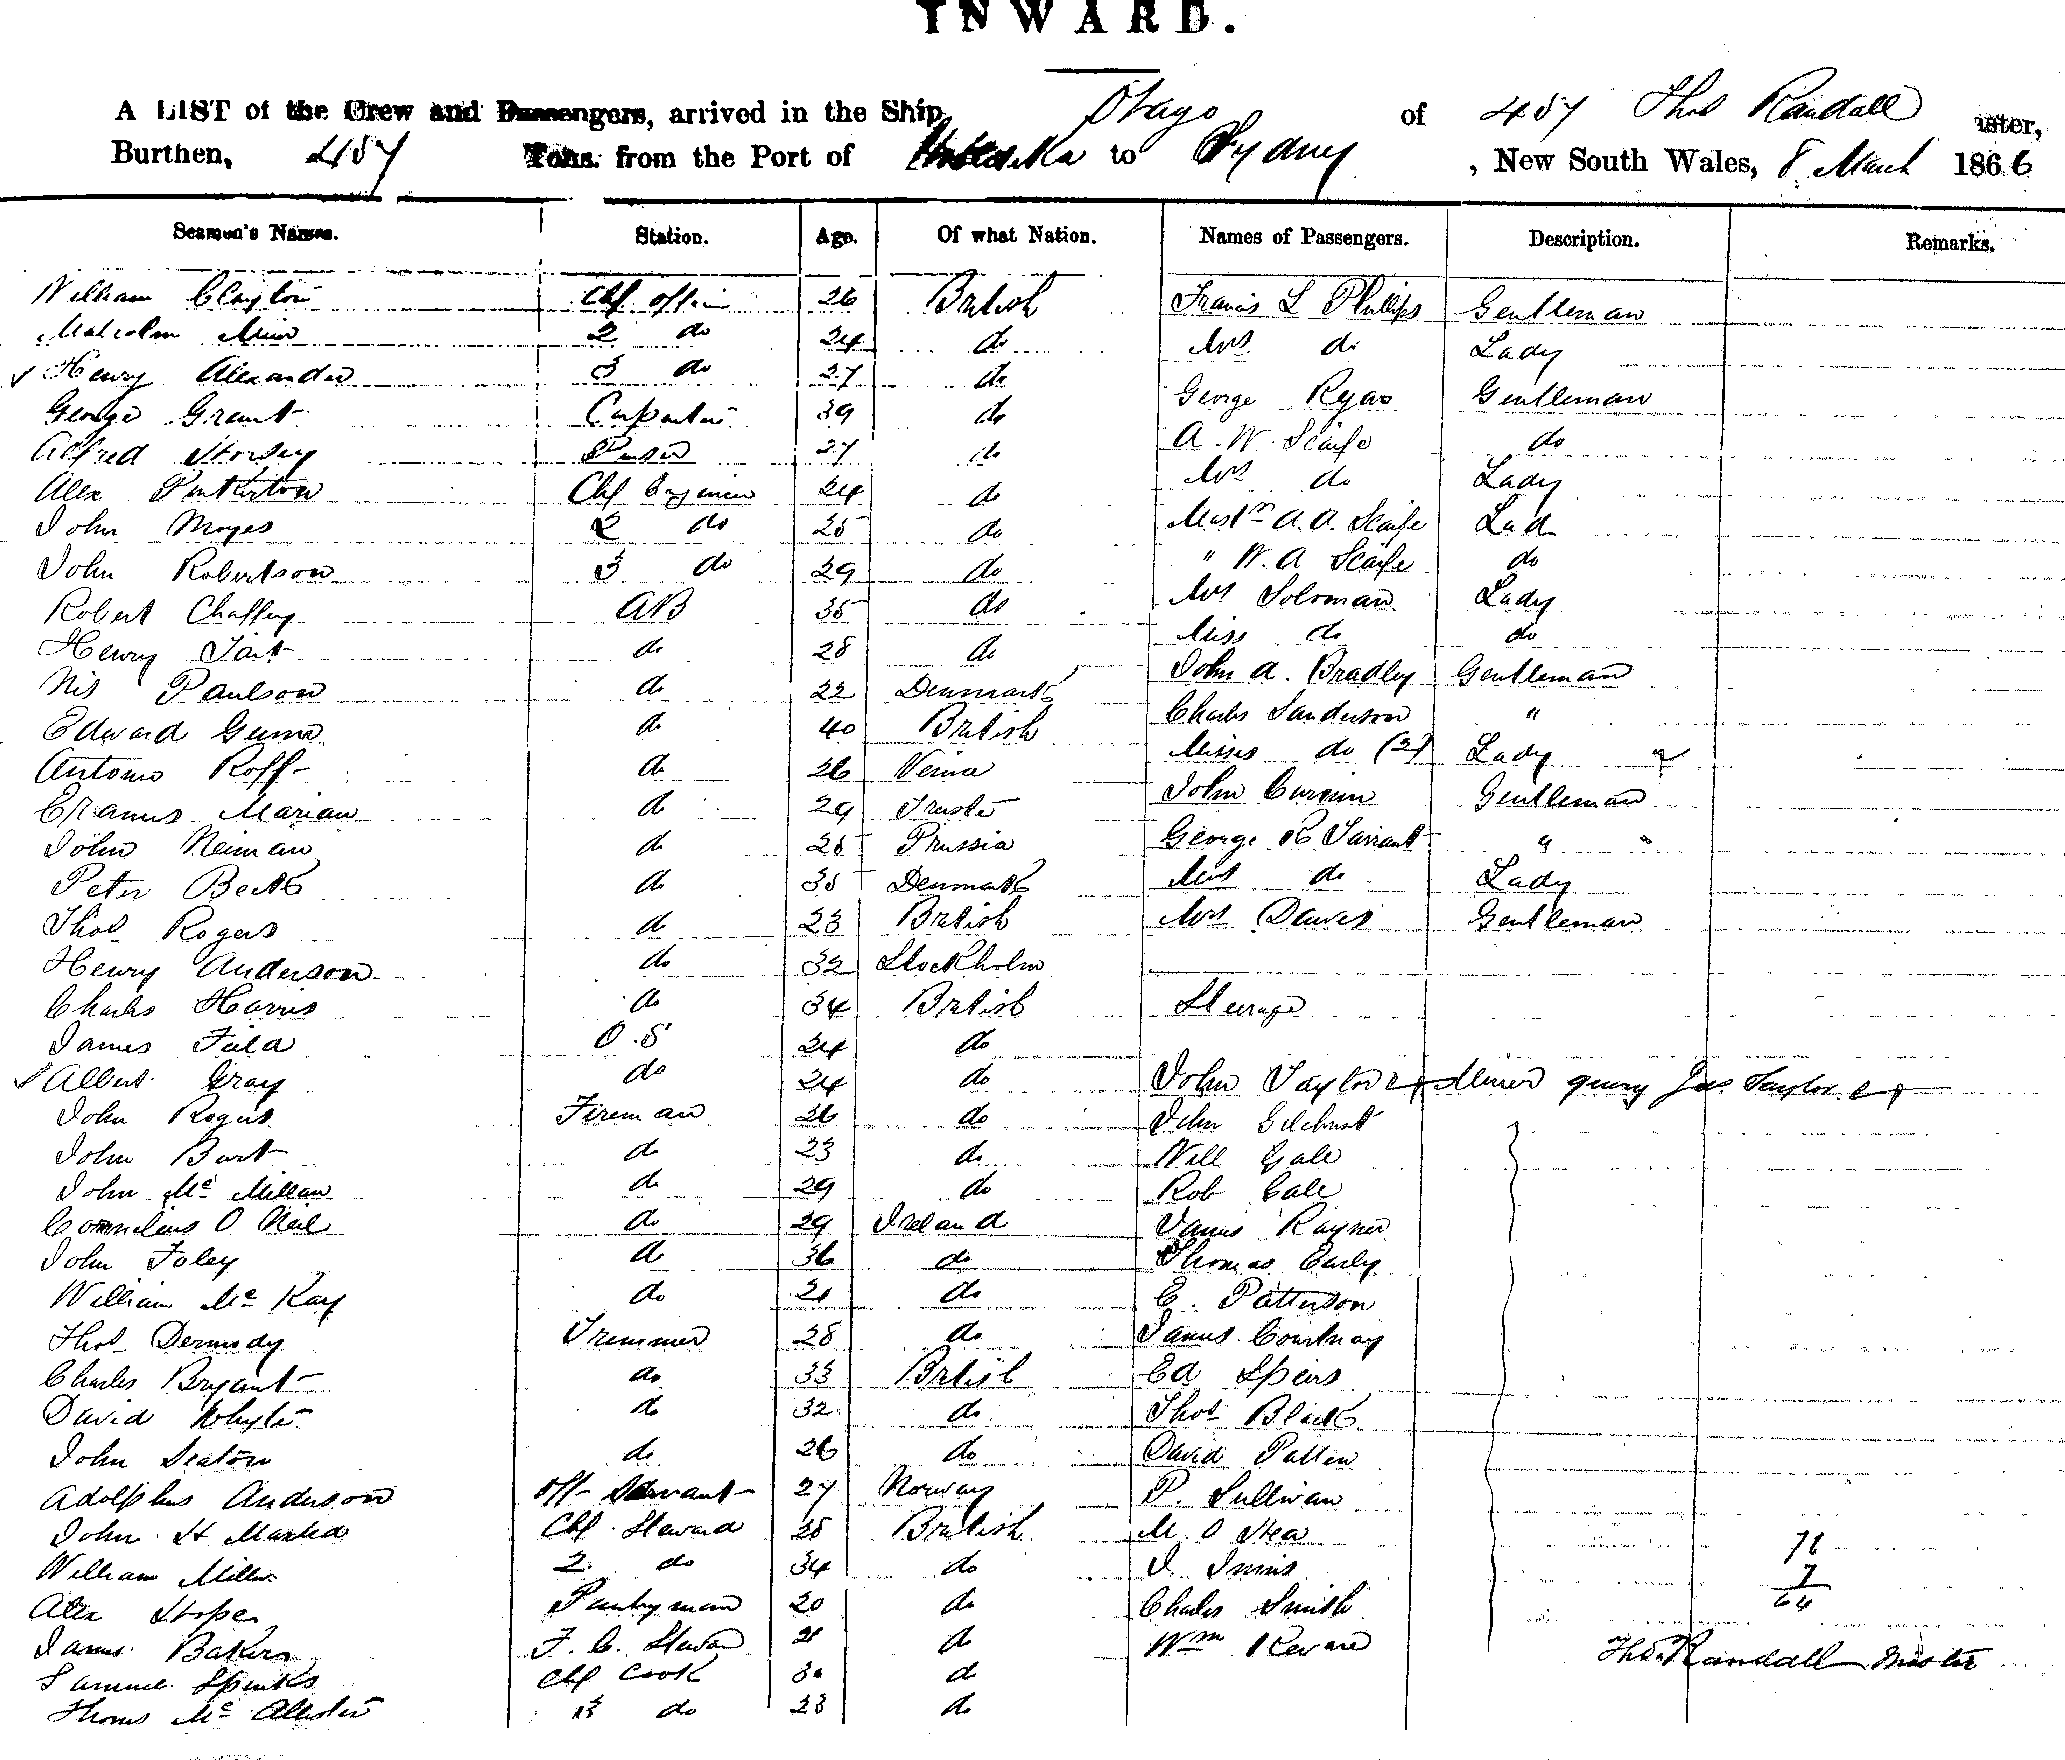 INWARD.
A LIST of the Crew and Passengers, arrived in the Ship Otago of 457 Thos Randall Master,
Burthen, 457 Tons. from the Port of to Sydney , New South Wales, 8 March 1866
Seamen's Names. Station. Age. Of what Nation. Names of Passengers. Description. Remarks.
William Clayton Chf offic 26 British Francis L Phillips Gentleman
Malcolm Muir 2 do 24 do Mrs do Lady
Henry Alexander 3 do 27 do George Ryas Gentleman
George Grant Carpenter 39 do A. W. Scaife do
Alfred Storsey Purser 27 do Mrs do Lady
Alex Pinkerton Chf Engineer 24 do Mastr A. A. Scaife Lad
John Moyes 2 do 25 do " W. A Scaife do
John Robertson 3 do 29 do Mrs Soloman Lady
Robert Chaffey AB 35 do Miss do do
Henry Tait do 28 do John A. Bradley Gentleman
Nis Paulson do 22 Denmark Charles Sanderson "
Edward do 40 British Misses do (2) Lady "
Antonio Roff do 26 John Gentleman
Marian do 29 Trieste George R Tarrant " "
John Neiman do 25 Prussia Mrs do Lady
Peter Beck do 35 Denmark Mrs Davis Gentleman
Thos Rogers do 23 British
Henry Anderson do 32 Stockholm
Charles Harris do 34 British Steerage
James Field O.S 24 do
Albert Gray do 24 do John Taylor Miner query Jas Taylor
John Rogers Fireman 26 do John Gilchrist
John Burt do 23 do Will Gale
John Mc Millan do 29 do Rob Gale
Cornelius O Neil do 29 Ireland James Rayner
John Foley do 36 do Thomas Early
William Mc Kay do 21 do E. Patterson
Thos Dermody Trimmer 28 do James Courtnay
Charles Bryant do 33 British Ed Speirs
David Whyte do 32 do Thos Black
John Seaton do 26 do David Patten
Adolphus Anderson Off Servant 27 Norway P. Sullivan
John St Chf Steward 28 British M. O Shea
William Miller 2 do 34 do J. Innis 71
Alex Pantryman 20 do Charles Smith 7
James Baker F. C. Steward 21 do Wm 64
Samuel Spinks Chf Cook 30 do Thos Randall Master
Thoms Mc Allister 2 do 23 do